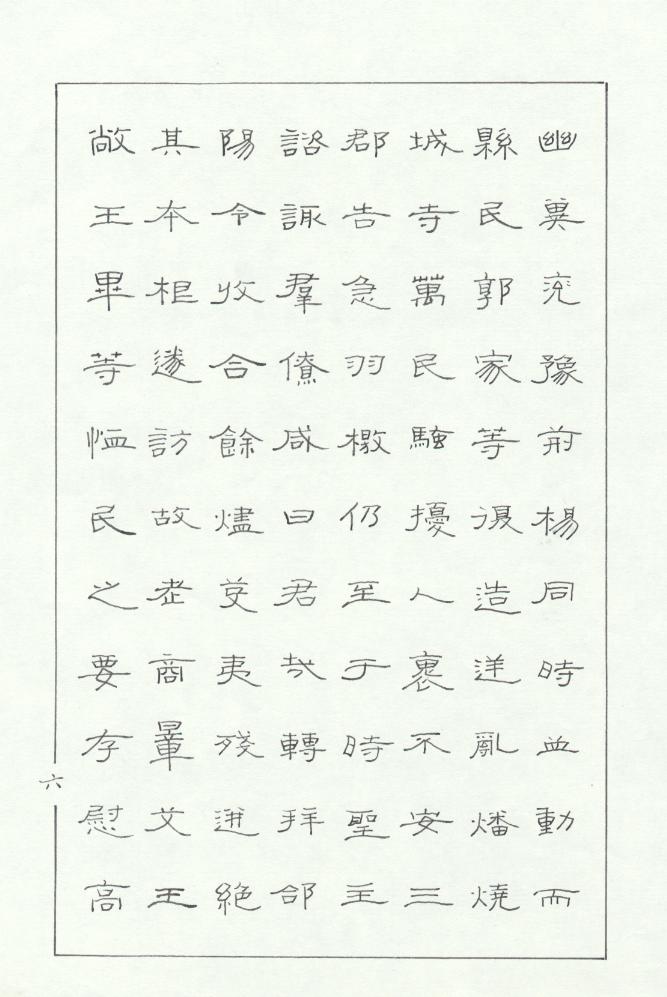 幽冀兗豫荊楊同時並動而
縣民郭家等復造逆亂燔燒
城寺萬民騷擾人裹不安三
郡告急羽檄仍至于時聖主
諮諏羣僚咸曰君哉轉拜郃
陽令收合餘燼芟夷殘迸絕
其本根遂訪故老商量艾王
敞王畢等恤民之要存慰高
六